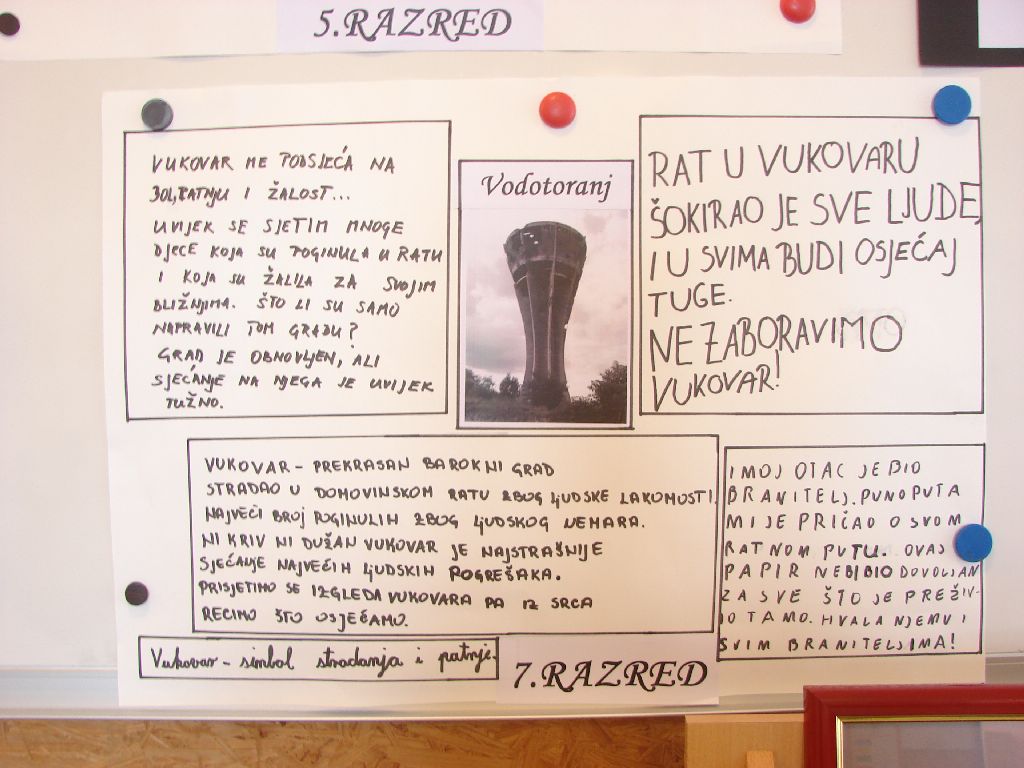 5.RAZRED
VUKOVAR ME PODSJEĆA NA
BOL, PATNJU I ŽALOST...
UVIJEK SE SJETIM MNOGE
DJECE KOJA SU POGINULA U RATU
I KOJA SU ŽALILA ZA SVOJIM
BLIŽNJIMA. ŠTO LI SU SAMO
NAPRAVILI TOM GRADU?
GRAD JE OBNOVLJEN, ALI
SJEĆANJE NA NJEGA JE UVIJEK
TUŽNO.
Vodotoranj
RAT U VUKOVARU
ŠOKIRAO JE SVE LJUDE,
I U SVIMA BUDI OSJEĆAJ
TUGE.
NE ZABORAVIMO
VUKOVAR!
VUKOVAR - PREKRASAN BAROKNI GRAD
STRADAO U DOMOVINSKOM RATU ZBOG LJUDSKE LAKOMOSTI.
NAJVEĆI BROJ POGINULIH ZBOG LJUDSKOG NEMARA.
NI KRIV NI DUŽAN VUKOVAR JE NAJSTRAŠNIJE
SJEĆANJE NAJVEĆIH LJUDSKIH POGREŠAKA.
PRISJETIMO SE IZGLEDA VUKOVARA PA IZ SRCA
RECIMO ŠTO OSJEĆAMO.
I MOJ OTAC JE BIO
BRANITELJ. PUNO PUTA
MI JE PRIČAO O SVOM
RATNOM PUTU. OVAJ
PAPIR NEBI BIO DOVOLJAN
ZA SVE ŠTO JE PREŽIV-
IO TAMO. HVALA NJEMU I
SVIM BRANITELJIMA!
Vukovar - simbol stradanja i patnje.
7.RAZRED